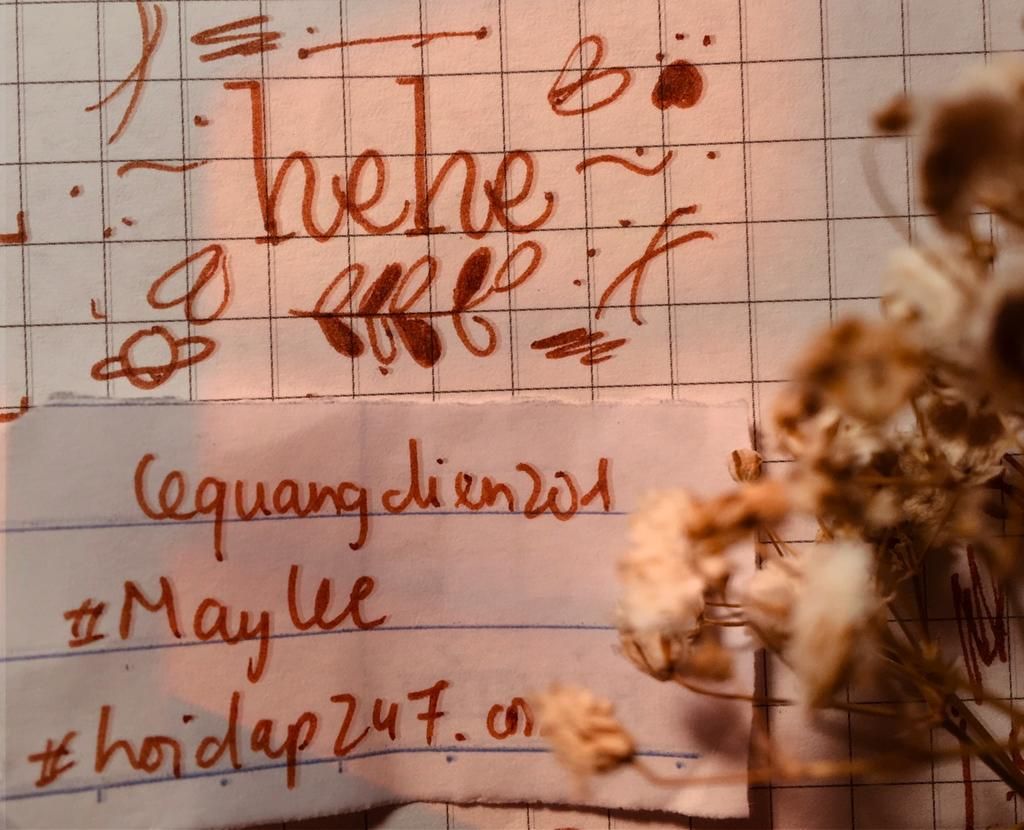 hehe
lequangdien201
#May lee
#hoidap247.com